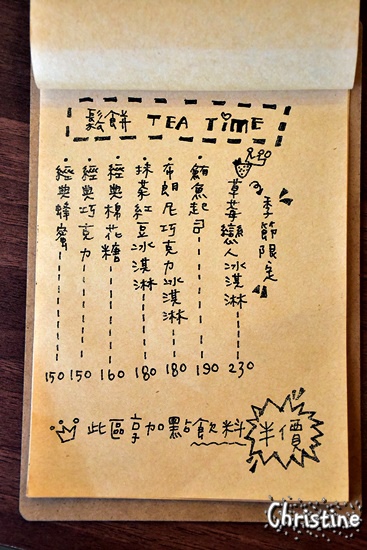 鬆餅 TEA TiME
R20
季節限定
草莓戀人冰淇淋 230
鮪魚起司 190
布朗尼巧克力冰淇淋 180
抹茶紅豆冰淇淋 180
經典棉花糖 160
經典巧克力 150
經典蜂蜜 150
此區享加點飲料半價
Christine